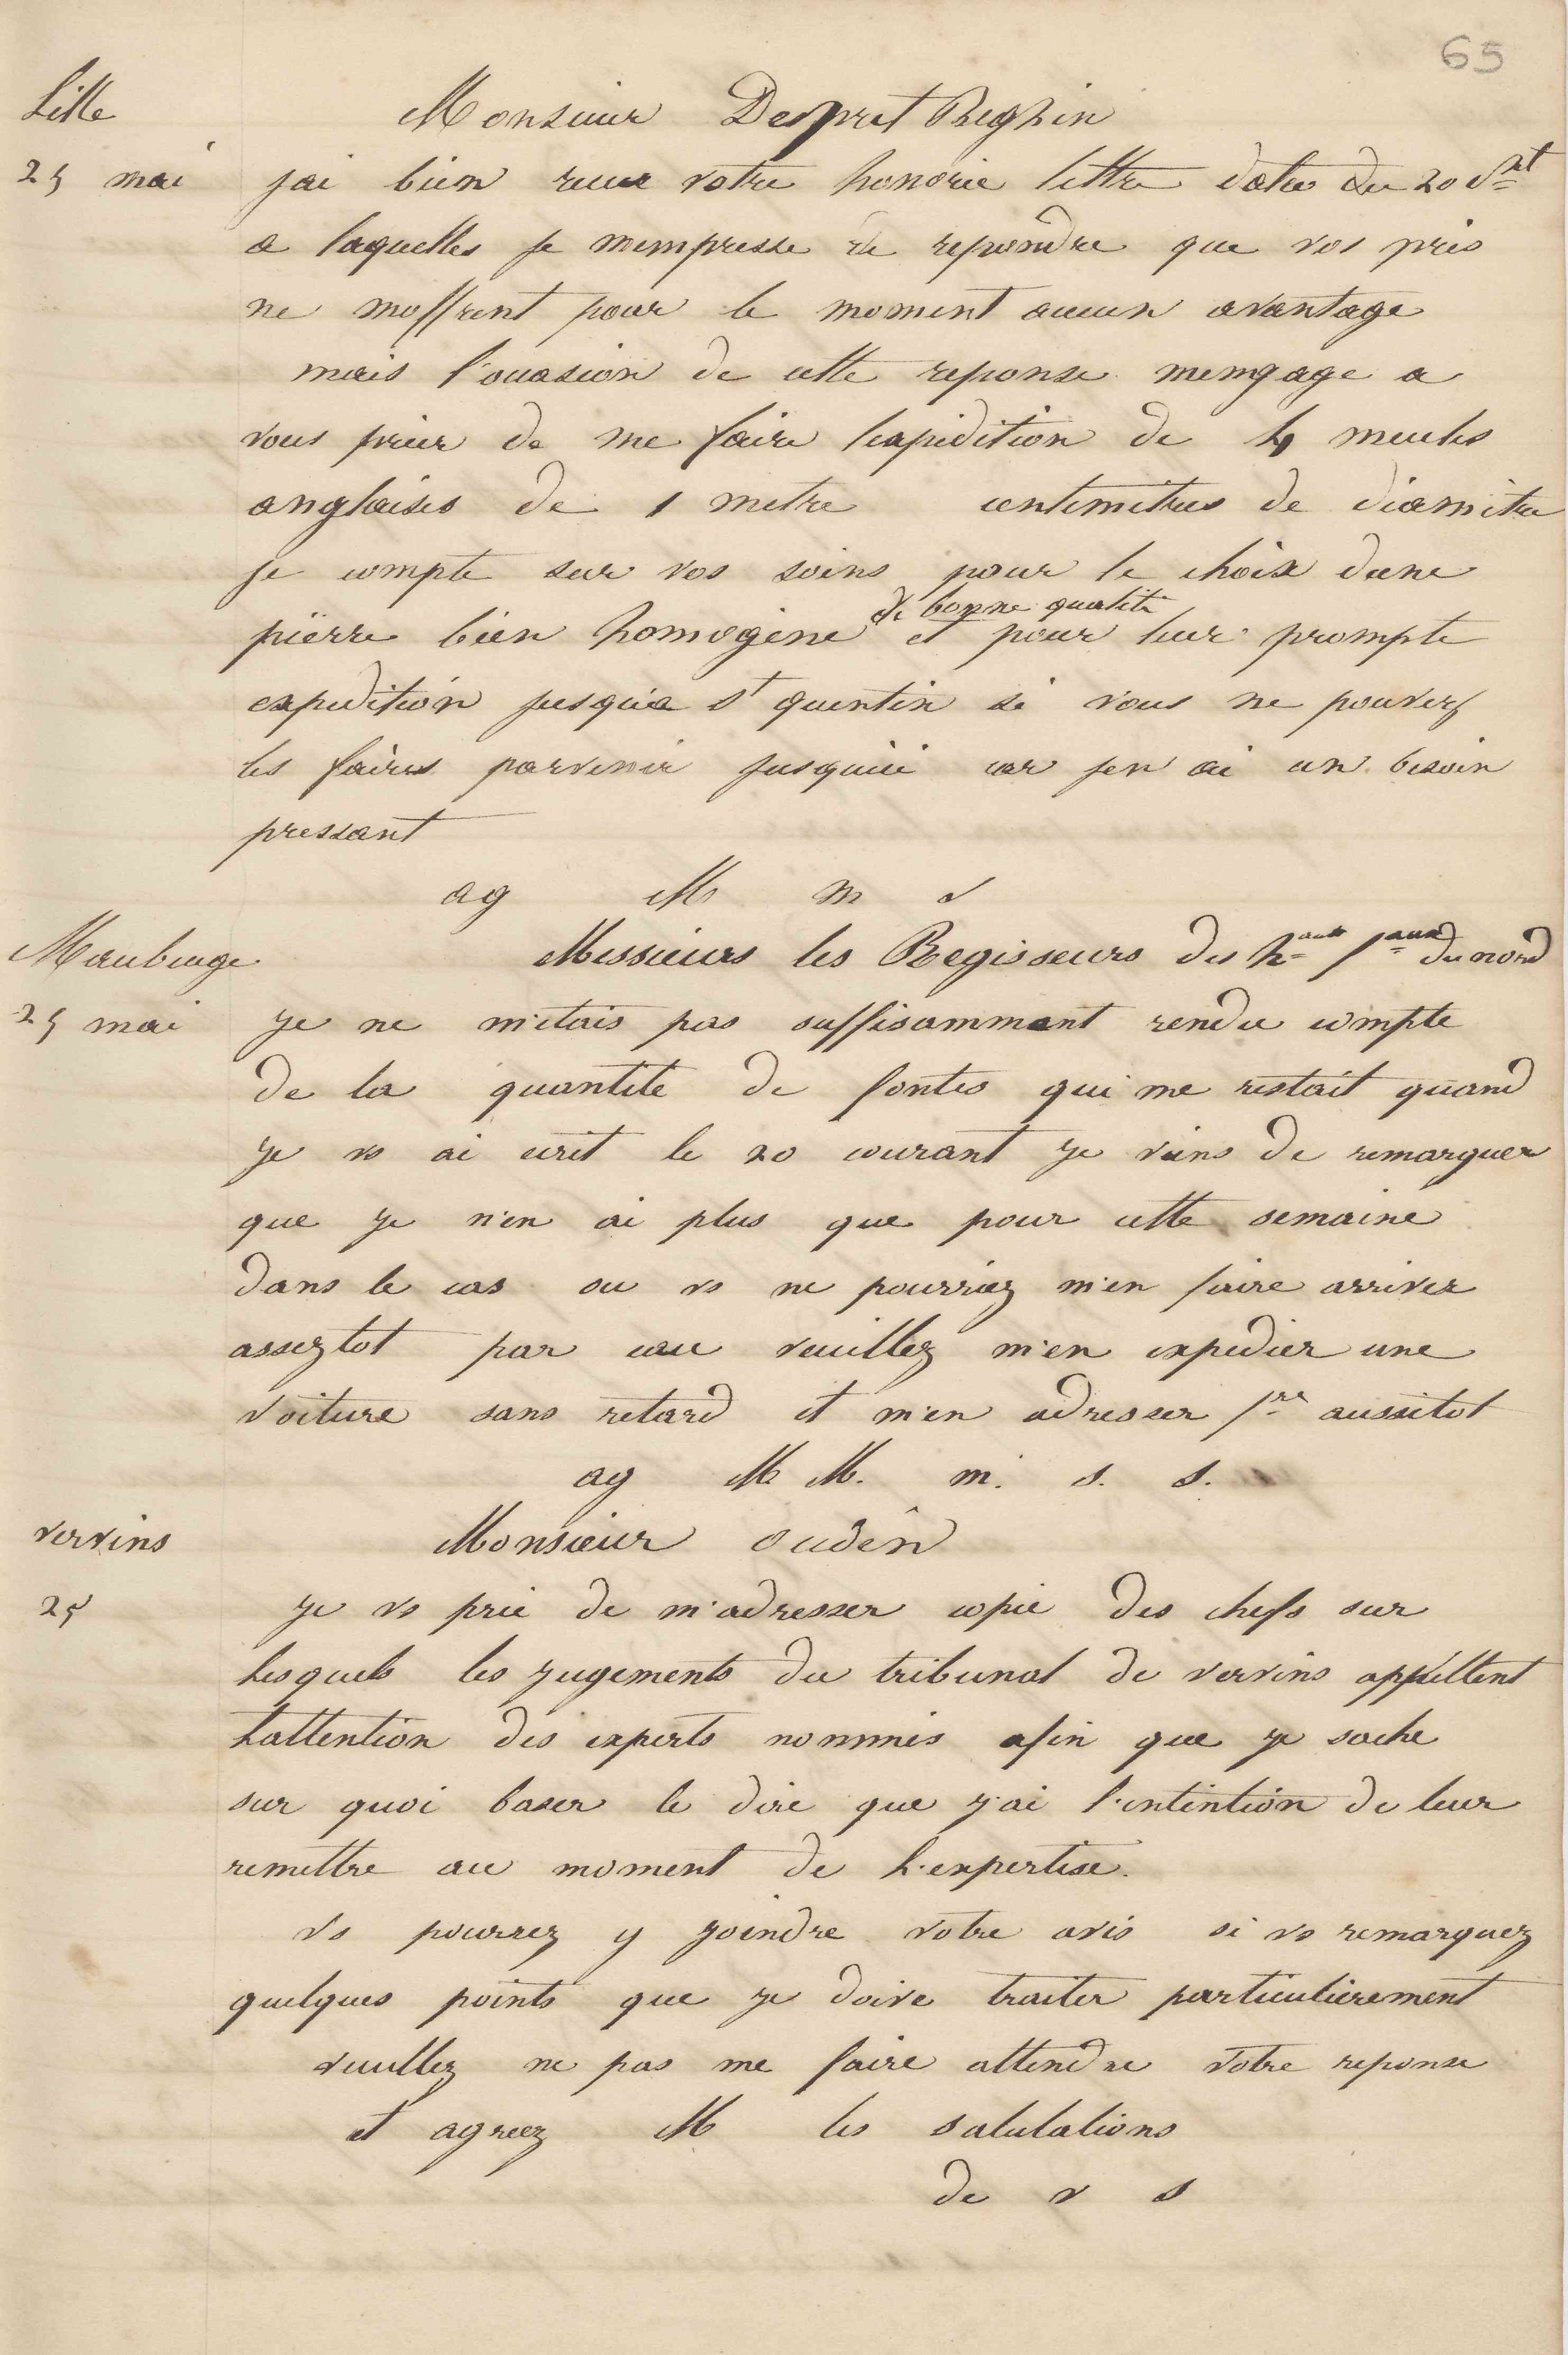 65
Lille
Monsieur Despret Beghin
25 mai
jai bien recue votre honorée lettre datée du 20 Ct
a laquelles je mempresse de repondre que vos prix
ne moffrent pour le moment aucun avantage
mais l'occasion de cette reponse mengage a
vous prier de me faire lexpedition de 4 meules
anglaises de 1 metre centimètres de diamètre
je compte sur vos soins pour le choix dune
de bonne qualité
pierre bien homogène et pour leur prompte
expedition jusqu'a st quentin si vous ne pouvez
les faires parvenir jusquici car jen ai un besoin
pressant
ag M m s
Maubeuge
Messieurs les Regisseurs des hauts faux du nord
25 mai
je ne m'etais pas suffisamment rendu compte
de la quantite de fontes qui me restait quand
je vs ai ecrit le 20 courant je viens de remarquer
que je n'en ai plus que pour cette semaine
dans le cas ou vs ne pourriez m'en faire arriver
asseztot par eau veuillez m'en expedier une
voiture sans retard et m'en adresser fre aussitot
ag M M. m. s. s.
vervins
Monsieur oudin
25
je vs prie de m'adresser copie des chefs sur
lesquels les jugements du tribunal de vervins appellent
lattention des experts nommés afin que je sache
sur quoi baser le dire que j'ai l'intention de leur
remettre au moment de l'expertise.
vs pourrez y joindre votre avis si vs remarquez
quelques points que je doive traiter particulierement
veuillez ne pas me faire attendre votre reponse
et agreez M les salutations
de v s